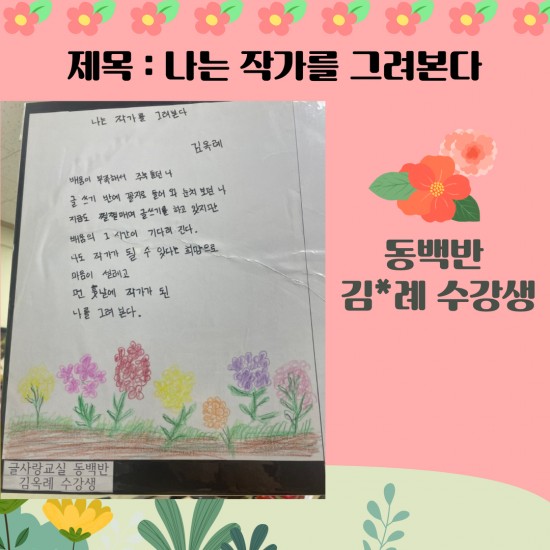 제목 : 나는 작가를 그려본다
나는 작가를 그려본다
김옥례
배움이 부족해서 주눅 들던 나
글 쓰기 반에 꼴찌로 들어 와 눈치 보던 나
지금도 쩔쩔매며 글쓰기를 하고 있지만
배움의 그 시간이 기다려 진다.
나도 작가가 될 수 있다는 희망으로
마음이 설레고
먼 훗날에 작가가 된
나를 그려 본다.
글사랑교실 동백반
김옥례 수강생
동백반
김*례 수강생